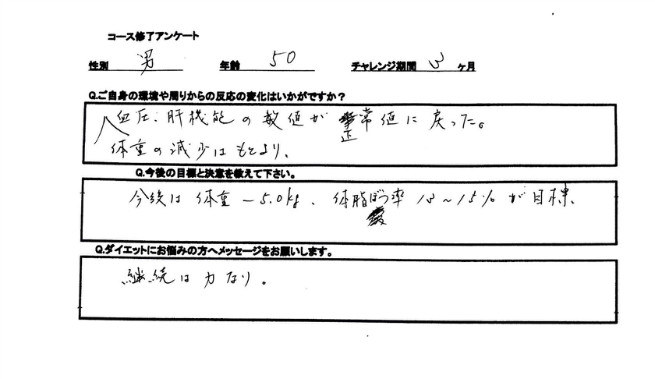 コース修了アンケート
性別 男 年齢 50 チャレンジ期間 3 ヶ月
Q.ご自身の環境や周りからの反応の変化はいかがですか？
血圧、肝機能の数値が正常値に戻った。
体重の減少はもとより、
Q.今後の目標と決意を教えて下さい。
今後は体重-5.0kg、体脂ぼう率13~15%が目標、
Q.ダイエットにお悩みの方へメッセージをお願いします。
継続は力なり。